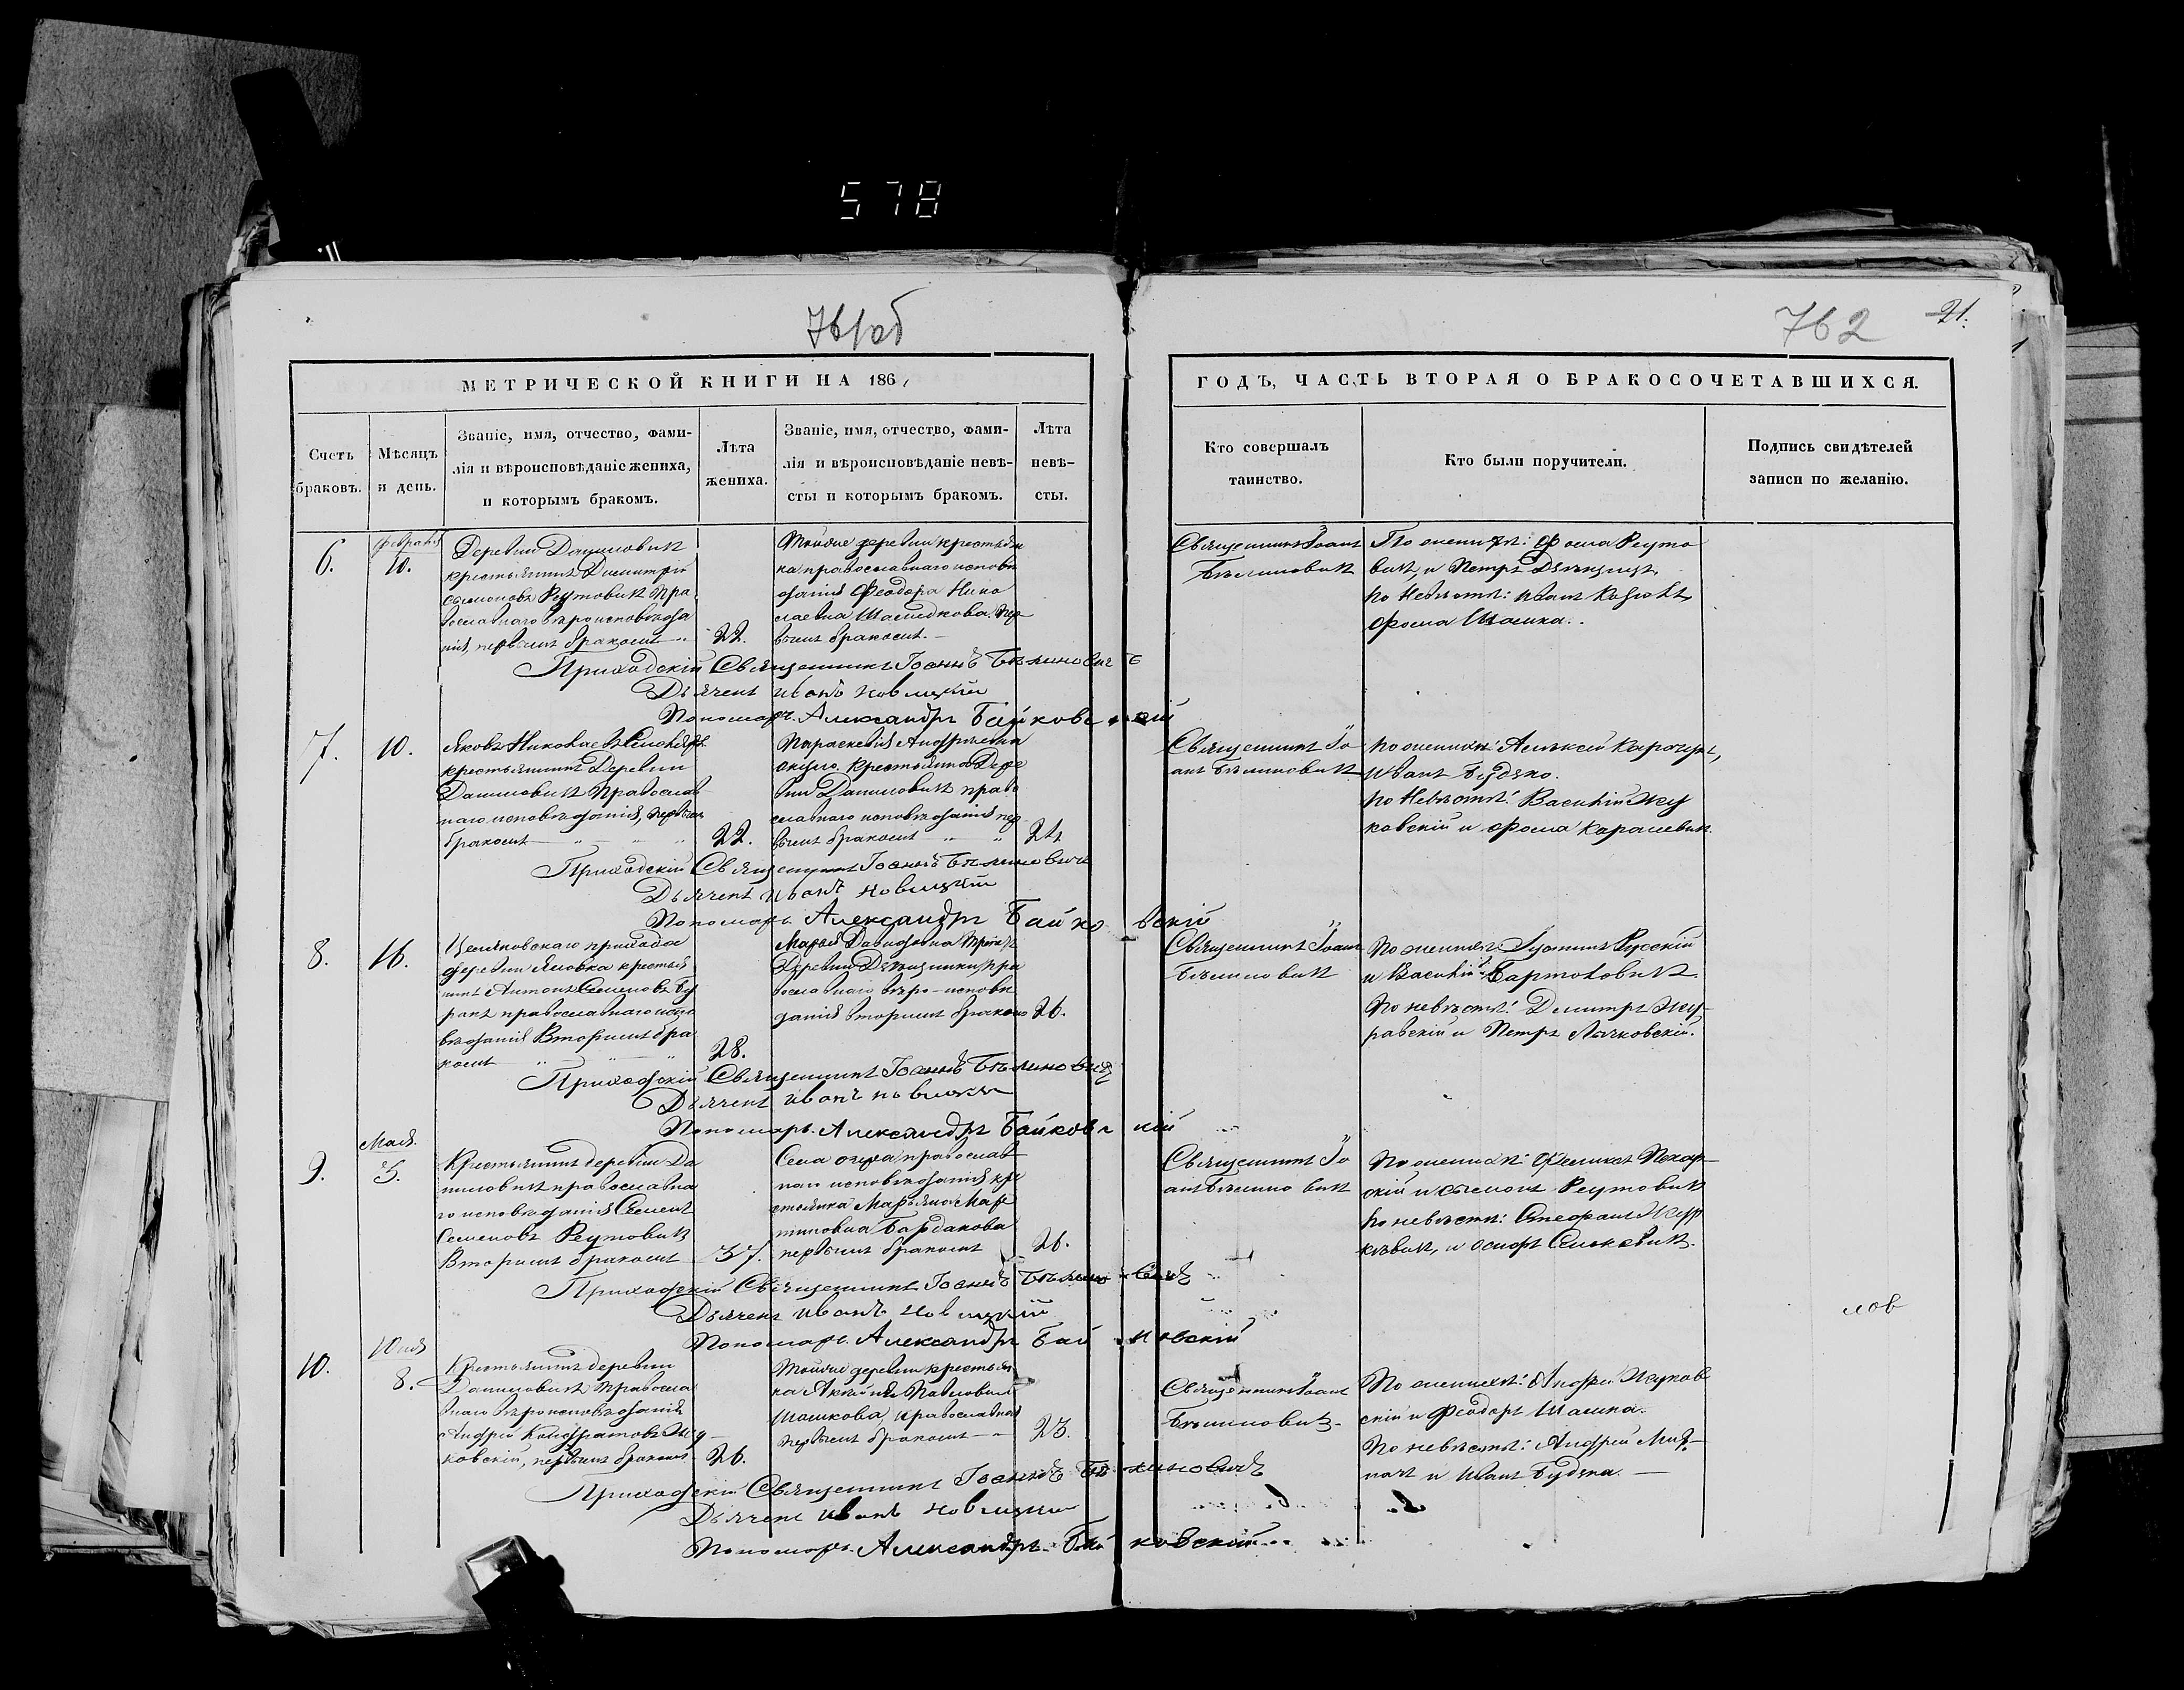 578
761об
762
21.
МЕТРИЧЕСКОЙ КНИГИ НА 1861
ГОДЪ, ЧАСТЬ ВТОРАЯ О БРАКОСОЧЕТАВШИХСЯ.
Счетъ
браковъ.
Мѣсяцъ
и день.
Званіе, имя, отчество, фами-
лія и вѣроисповѣданіе жениха,
и которымъ бракомъ.
Лѣта
жениха.
Званіе, имя, отчество, фами-
лія и вѣроисповѣданіе невѣ-
сты и которымъ бракомъ.
Лѣта
невѣ-
сты.
Кто совершалъ
таинство.
Кто были поручители.
Подпись свидѣтелей
записи по желанію.
6.
февраля
10.
Деревни Даниловичъ
крестьянинъ Димитрій
Сѵмоновъ Реутовичъ пра
вославнаго вѣроисповѣда
нія, первымъ бракомъ
22.
Тойже деревни крестьян
ка православнаго исповѣ
данія Феодора Нико
лаевна Шашкова пер
вымъ бракомъ.
Священникъ Іоаннъ
Бѣлиновичъ
По женихѣ: Фома Реуто
вичъ, и Петръ
по Невѣстѣ: Иванъ
Фома Шашка.
Приходскій Священникъ Іоаннъ Бѣлиновичъ
Дьячекъ Иванъ Новицкій
Пономарь Александръ Байковскій
7.
10.
Яковъ Николаевъ
крестьянинъ Деревни
Даниловичъ Православ
наго исповѣданія, первымъ
бракомъ
22.
Параскевія Андреевна
крестьянка Дере
вни Даниловичъ право
славнаго исповѣданія пер
вымъ бракомъ
21
Священникъ Іо
аннъ Бѣлиновичъ
по женихѣ: Алексей
Иванъ Будзко.
по Невѣстѣ: Василій Жу
ковскій и Фома
Приходскій Священникъ Іоаннъ Бѣлиновичъ
Дьячекъ Иванъ Новицкій
Пономарь Александръ Байковскій
8.
16.
прихода
деревни Яловка крестья
нинъ Антонъ Семеновъ Бу
ракъ православнаго испо
вѣданія Вторымъ бра
комъ
28.
Марья Давидовна
Деревни пра
вославнаго вѣро-исповѣ
данія вторымъ бракомъ
26.
Священникъ Іоаннъ
Бѣлиновичъ
По женихѣ: Русскій
и Василій Бартоловичъ
По невѣстѣ: Димитръ Жу-
равскій и Петръ Лячковскій.
Приходскій Священникъ Іоаннъ Бѣлиновичъ
Дьячекъ Иванъ Новицкій
Пономарь Александръ Байковскій
9.
Мая.
3.
Крестьянинъ деревни Да
ниловичъ православна
го исповѣданія Семенъ
Семеновъ Реутовичъ
Вторымъ бракомъ
37.
Села православ
наго исповѣданія кре
стьянка Марьяна Мар
тиновна Бардакова
первымъ бракомъ
26.
Священникъ Іо
аннъ Бѣлиновичъ
По женихѣ: Феликсъ
и Сѵмонъ Реутовичъ
По невѣстѣ: Стефанъ
и Осипъ Сеньковичъ.
Приходскій Священникъ Іоаннъ Бѣлиновичъ
Дьячекъ Иванъ Новицкій
Пономарь Александръ Байковскій
лов
10.
8.
Крестьянинъ деревни
Даниловичъ Правосла
внаго вѣроисповѣданія
Андрей Кондратовъ Жу
ковскій, первымъ бракомъ
26.
Тойже деревни крестьян
ка Павловна
Шашкова, православная
первымъ бракомъ
23.
Священникъ Іоаннъ
Бѣлиновичъ
По женихѣ: Андрей Жуков
скій и Феодоръ Шашка.
По невѣстѣ: Андрей
и Иванъ Будзка.
Приходскій Священникъ Іоаннъ Бѣлиновичъ
Дьячекъ Иванъ Новицкій
Пономарь Александръ Байковскій